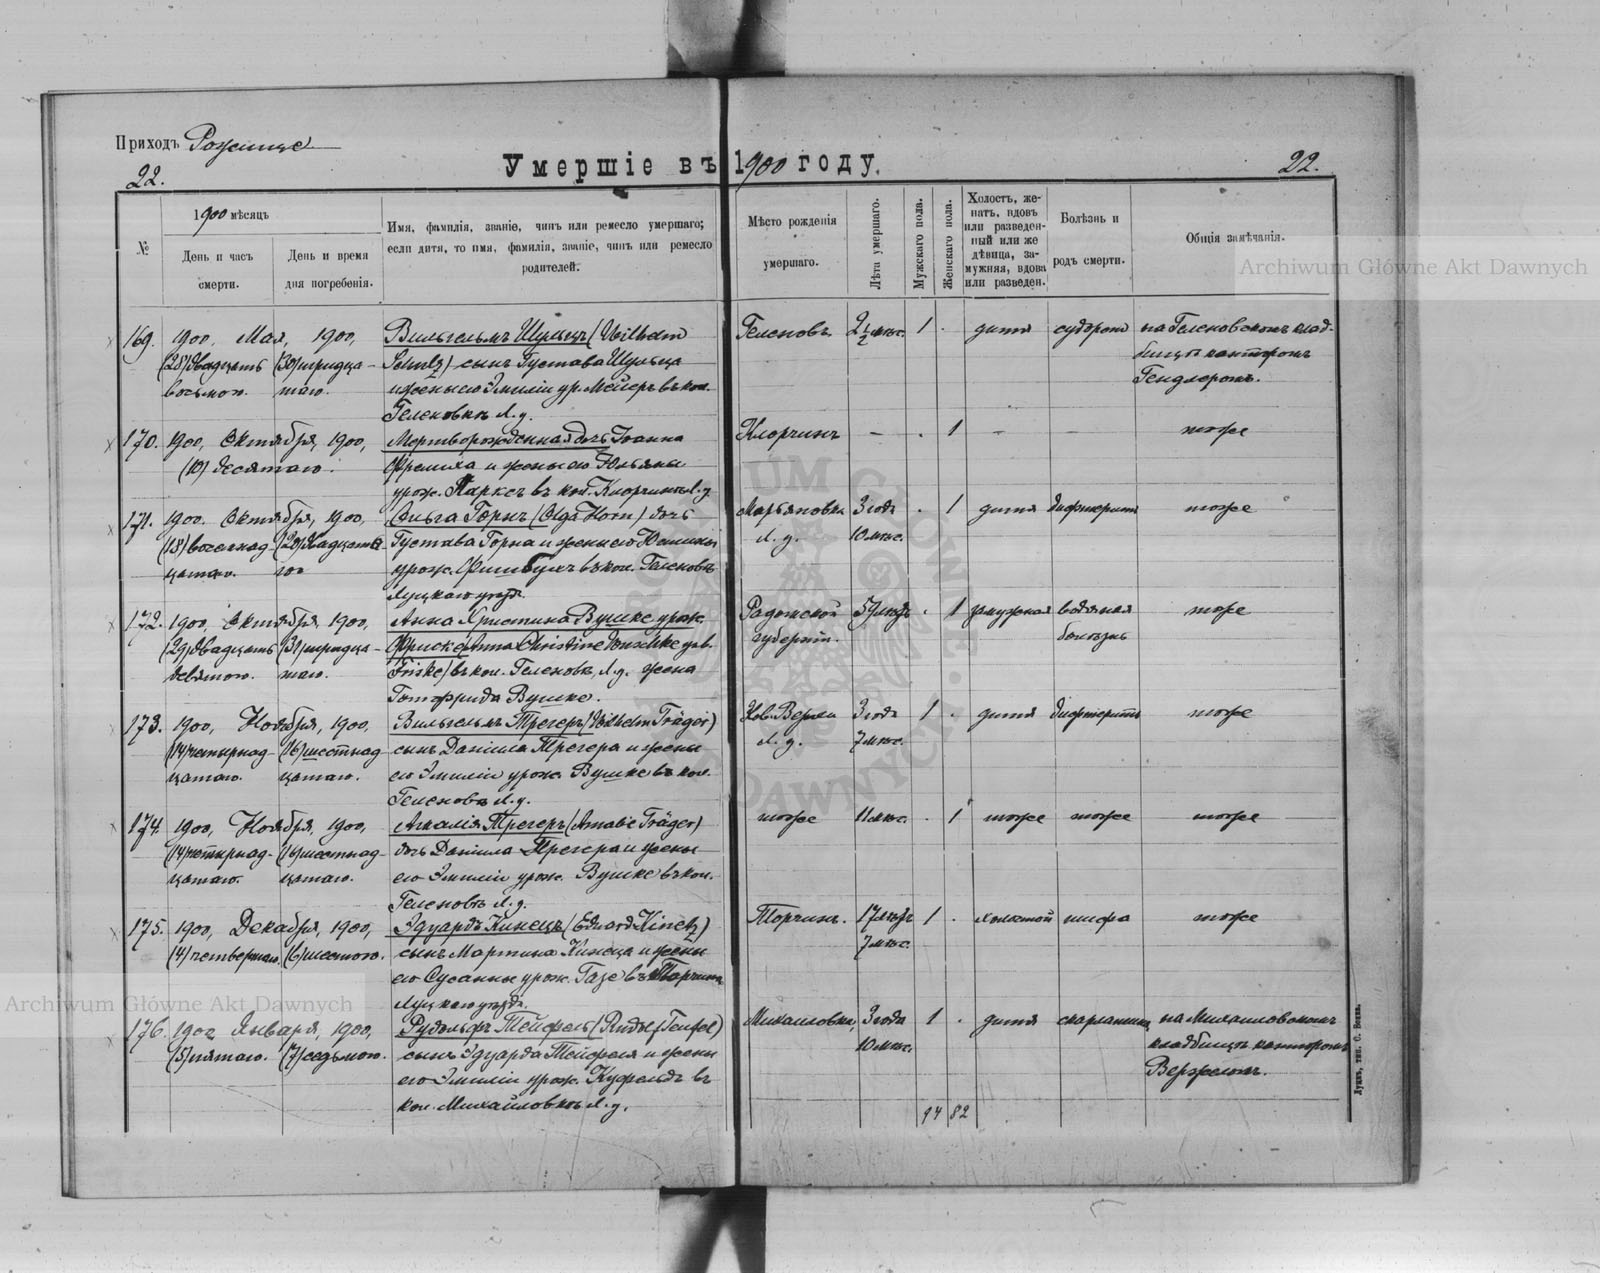 Приходъ Рожище
22.
Умершіе въ 1900 году.
22.
№
1900 мѣсяцъ
День и часъ смерти.
День и время дня погребенія.
Имя, фамилія, званіе, чинъ или ремесло умершаго;
если дитя, то имя, фамилія, званіе, чинъ или ремесло
родителей.
Мѣсто рожденія
умершаго.
Лѣта умершаго.
Мужскаго пола.
Женскаго пола.
Холостъ, же-
натъ, вдовъ
или разведен-
ный или же
дѣвица, за-
мужняя, вдова
или разведен.
Болѣзнь и
родъ смерти.
Общія замѣчанія.
Archiwum Główne Akt Dawnych
169. 1900, Мая, 1900, Вильгельмъ Шульцъ (Wilhelm Геленовъ 2½ мѣс. 1 . дитя судороги на Геленовскомъ клад-
(28) двадцать (30) тридца- Schultz) сынъ Густава Шульца бищѣ канторомъ
восьмого. таго. и жены его Эмиліи ур. Мейеръ въ кол. Гендлеромъ.
Геленовкѣ Л. у.
170. 1900, Октября, 1900, Мертворожденная дочь Іоанна — . 1 — тоже
(10) десятаго. и жены его Юльяны
урож. Парксъ въ кол. Л. у.
171. 1900. Октября, 1900, Ольга Горнъ (Olga Horn) дочь Марьяновка 3 года . 1 дитя дифтеритъ тоже
(18) восемнад- (20) двадцата- Густава Горна и жены его Л. у. 10 мѣс.
цатаго. го урож. въ кол. Геленовкѣ
Луцкаго уѣзда.
172. 1900, Октября, 1900, Анна Христина Вушке урож. Радомской 59 лѣтъ . 1 замужняя водяная тоже
(29) двадцать (31) тридца- Фриске (Anna Christine Wuschke geb. губерніи. болѣзнь
девятого. таго. Friske) въ кол. Геленовкѣ, Л. у. жена
Готфрида Вушке.
173. 1900, Ноября, 1900, Вильгельмъ Трегеръ (Wilhelm Träger) 3 года 1 . дитя дифтеритъ тоже
(14) четырнад- (16) шестнад- сынъ Даніила Трегера и жены Л. у. 7 мѣс.
цатаго. цатаго. его Эмиліи урож. Вушке въ кол.
Геленовкѣ Л. у.
174. 1900, Ноября, 1900, Амалія Трегеръ (Amalie Träger) тоже 11 мѣс. . 1 тоже тоже тоже
(14) четырнад- (16) шестнад- дочь Даніила Трегера и жены
цатаго. цатаго. его Эмиліи урож. Вушке въ кол.
Геленовкѣ Л. у.
175. 1900, Декабря, 1900, Эдуардъ Кинецъ (Eduard Kinetz) Торчинъ. 17 лѣтъ 1 . холостой тифа тоже
(4) четвертаго. (6) шестого. сынъ Мартина Кинеца и жены 7 мѣс.
его Сусанны урож. Газе въ Торчинѣ
Луцкаго уѣзда.
176. 1900, Января, 1900, Рудольфъ Тейфель (Rudolf Teufel) Михаиловка, 3 года 1 . дитя скарлатина на Михаиловскомъ
(5) пятаго. (7) седьмого. сынъ Эдуарда Тейфеля и жены 10 мѣс. кладбищѣ канторомъ
его Эмиліи урож. Куфельдъ въ
кол. Михайловкѣ Л. у.
94 82
Луцкъ, тип. С. Бокка.
Archiwum Główne Akt Dawnych